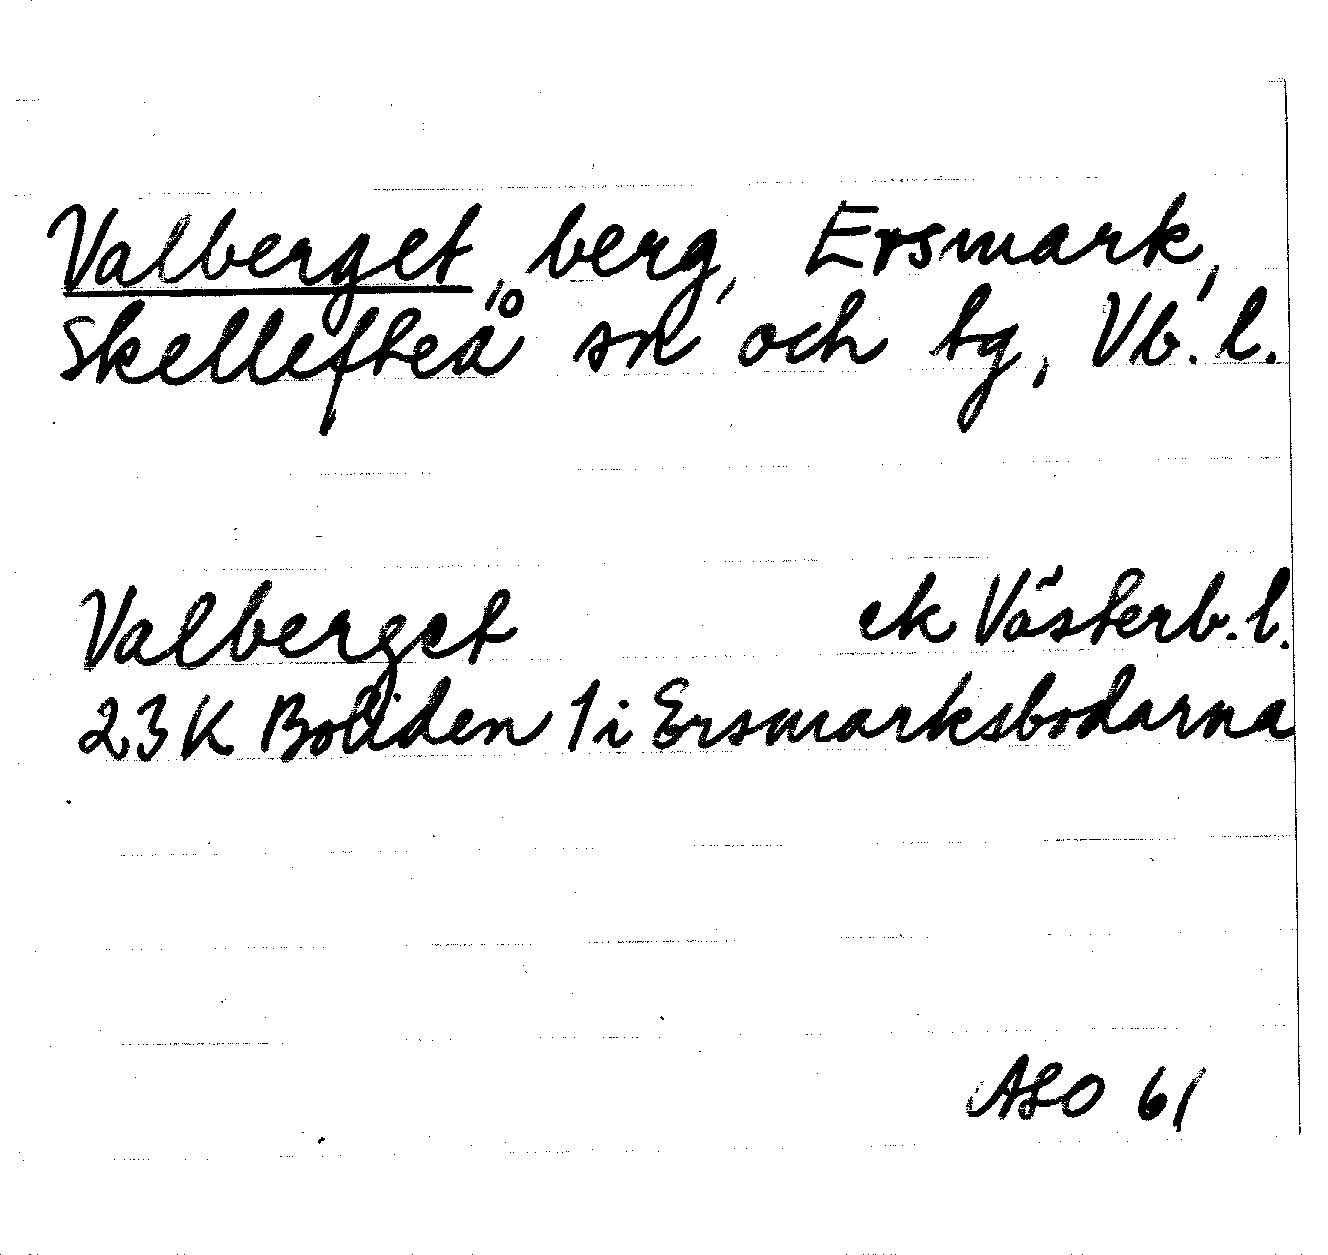 Valberget, berg, Ersmark,
Skellefteå sn och tg, Vb. l.
Valberget ek Västerb. l.
23K Boliden 1 i Ersmarksbodarna
ASO 61